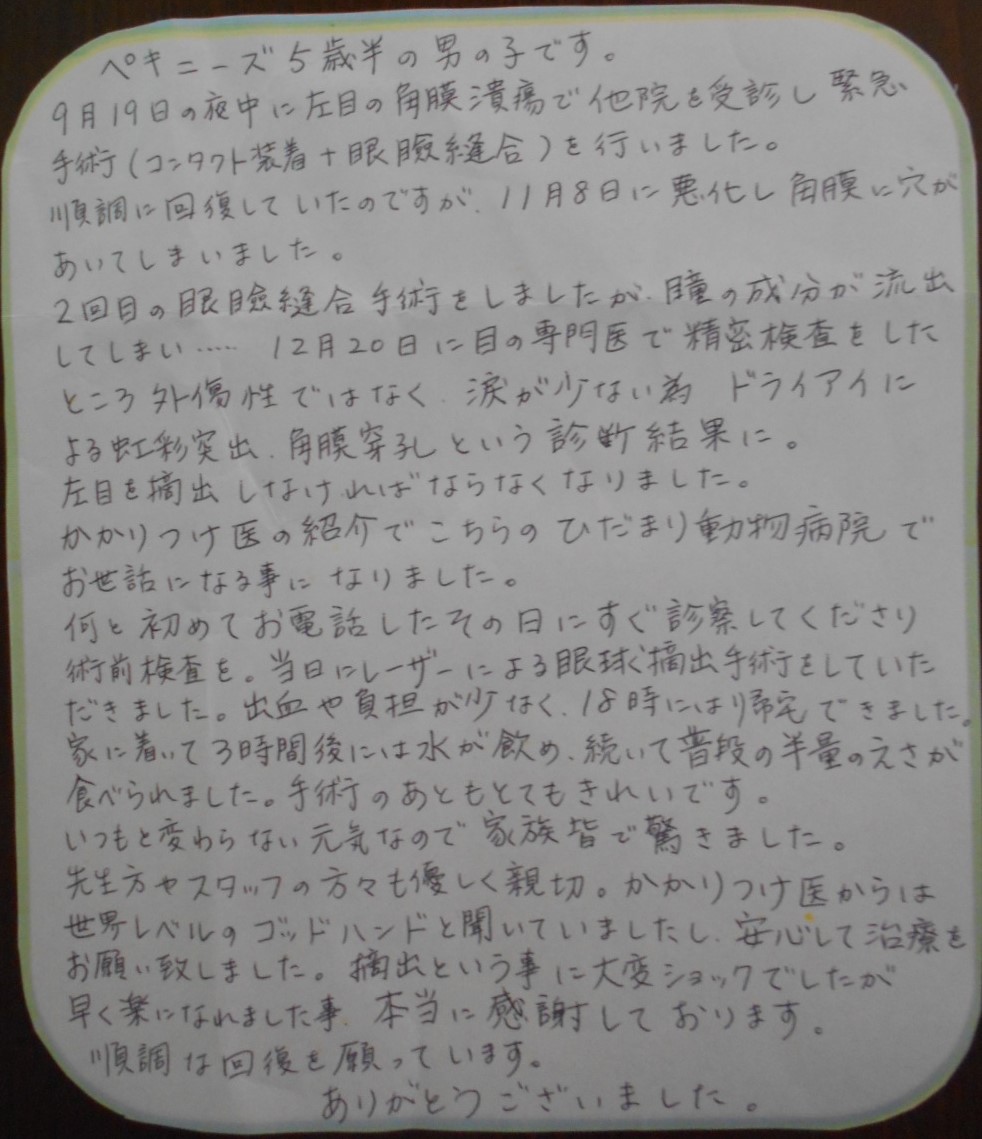 ペキニーズ5歳半の男の子です。
9月19日の夜中に左目の角膜潰瘍で他院を受診し緊急
手術(コンタクト装着+眼瞼縫合)を行いました。
順調に回復していたのですが、11月8日に悪化し角膜に穴が
あいてしまいました。
2回目の眼瞼縫合手術をしましたが、瞳の成分が流出
してしまい…… 12月20日に目の専門医で精密検査をした
ところ外傷性ではなく、涙が少ない為 ドライアイに
よる虹彩突出、角膜穿孔という診断結果に。
左目を摘出しなければならなくなりました。
かかりつけ医の紹介でこちらのひだまり動物病院で
お世話になる事になりました。
何と初めてお電話したその日にすぐ診察してくださり
術前検査を。当日にレーザーによる眼球摘出手術をしていた
だきました。出血や負担が少なく、18時には帰宅できました。
家に着いて3時間後には水が飲め、続いて普段の半量のえさが
食べられました。手術のあともとてもきれいです。
いつもと変わらない元気なので家族皆で驚きました。
先生方やスタッフの方々も優しく親切。かかりつけ医からは
世界レベルのゴッドハンドと聞いていましたし、安心して治療を
お願い致しました。摘出という事に大変ショックでしたが
早く楽になれました事、本当に感謝しております。
順調な回復を願っています。
ありがとうございました。